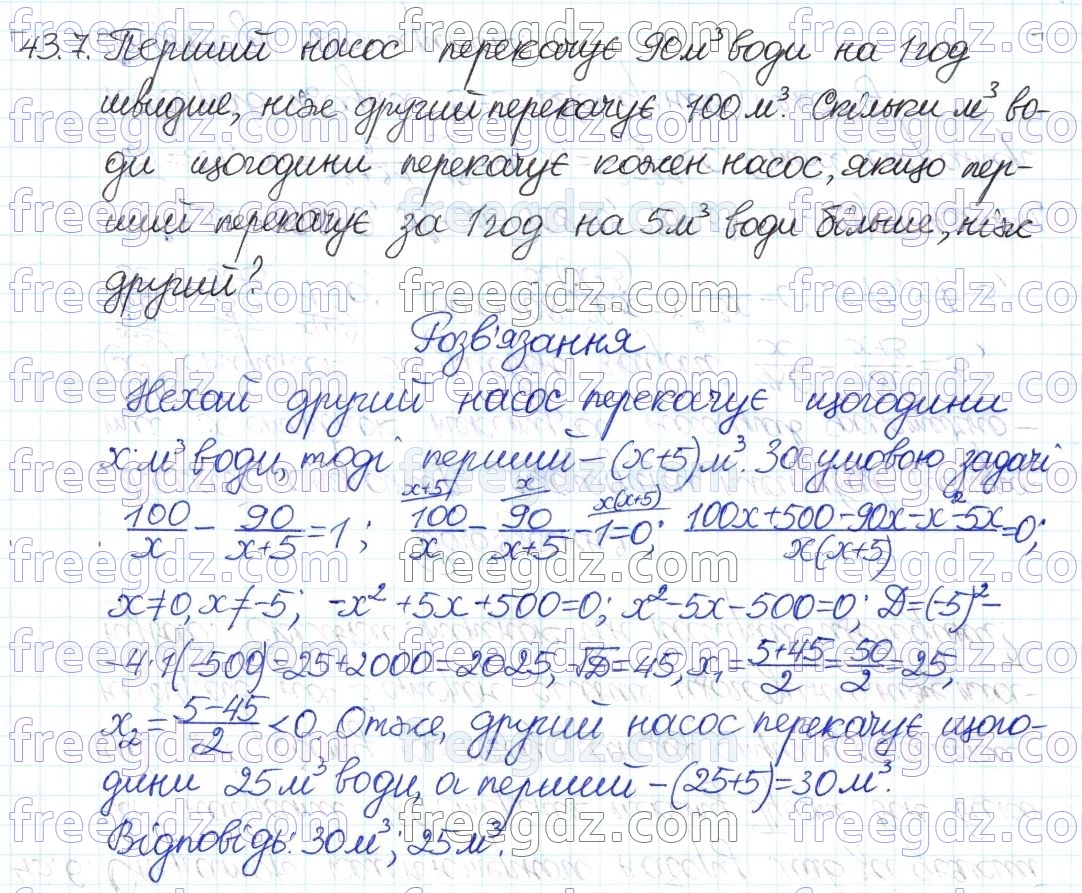 43.7. Перший насос перекачує 90м³ води на 1год
швидше, ніж другий перекачує 100м³. Скільки м³ во-
ди щогодини перекачує кожен насос, якщо пер-
ший перекачує за 1год на 5м³ води більше, ніж
другий?
Розв'язання
Нехай другий насос перекачує щогодини
x м³ води, тоді перший – (x+5) м³. За умовою задачі
100/x – 90/(x+5) = 1; 100/x (x+5) – 90/(x+5) (x) – 1 (x(x+5)) = 0; (100x+500–90x–x²–5x)/(x(x+5)) = 0;
x≠0, x≠–5; –x²+5x+500=0; x²–5x–500=0; D=(–5)²–
–4·1(–500)=25+2000=2025, √D=45, x₁=(5+45)/2=50/2=25,
x₂=(5–45)/2<0. Отже, другий насос перекачує щого-
дини 25м³ води, а перший – (25+5)=30м³.
Відповідь: 30м³; 25м³.
freegdz.com